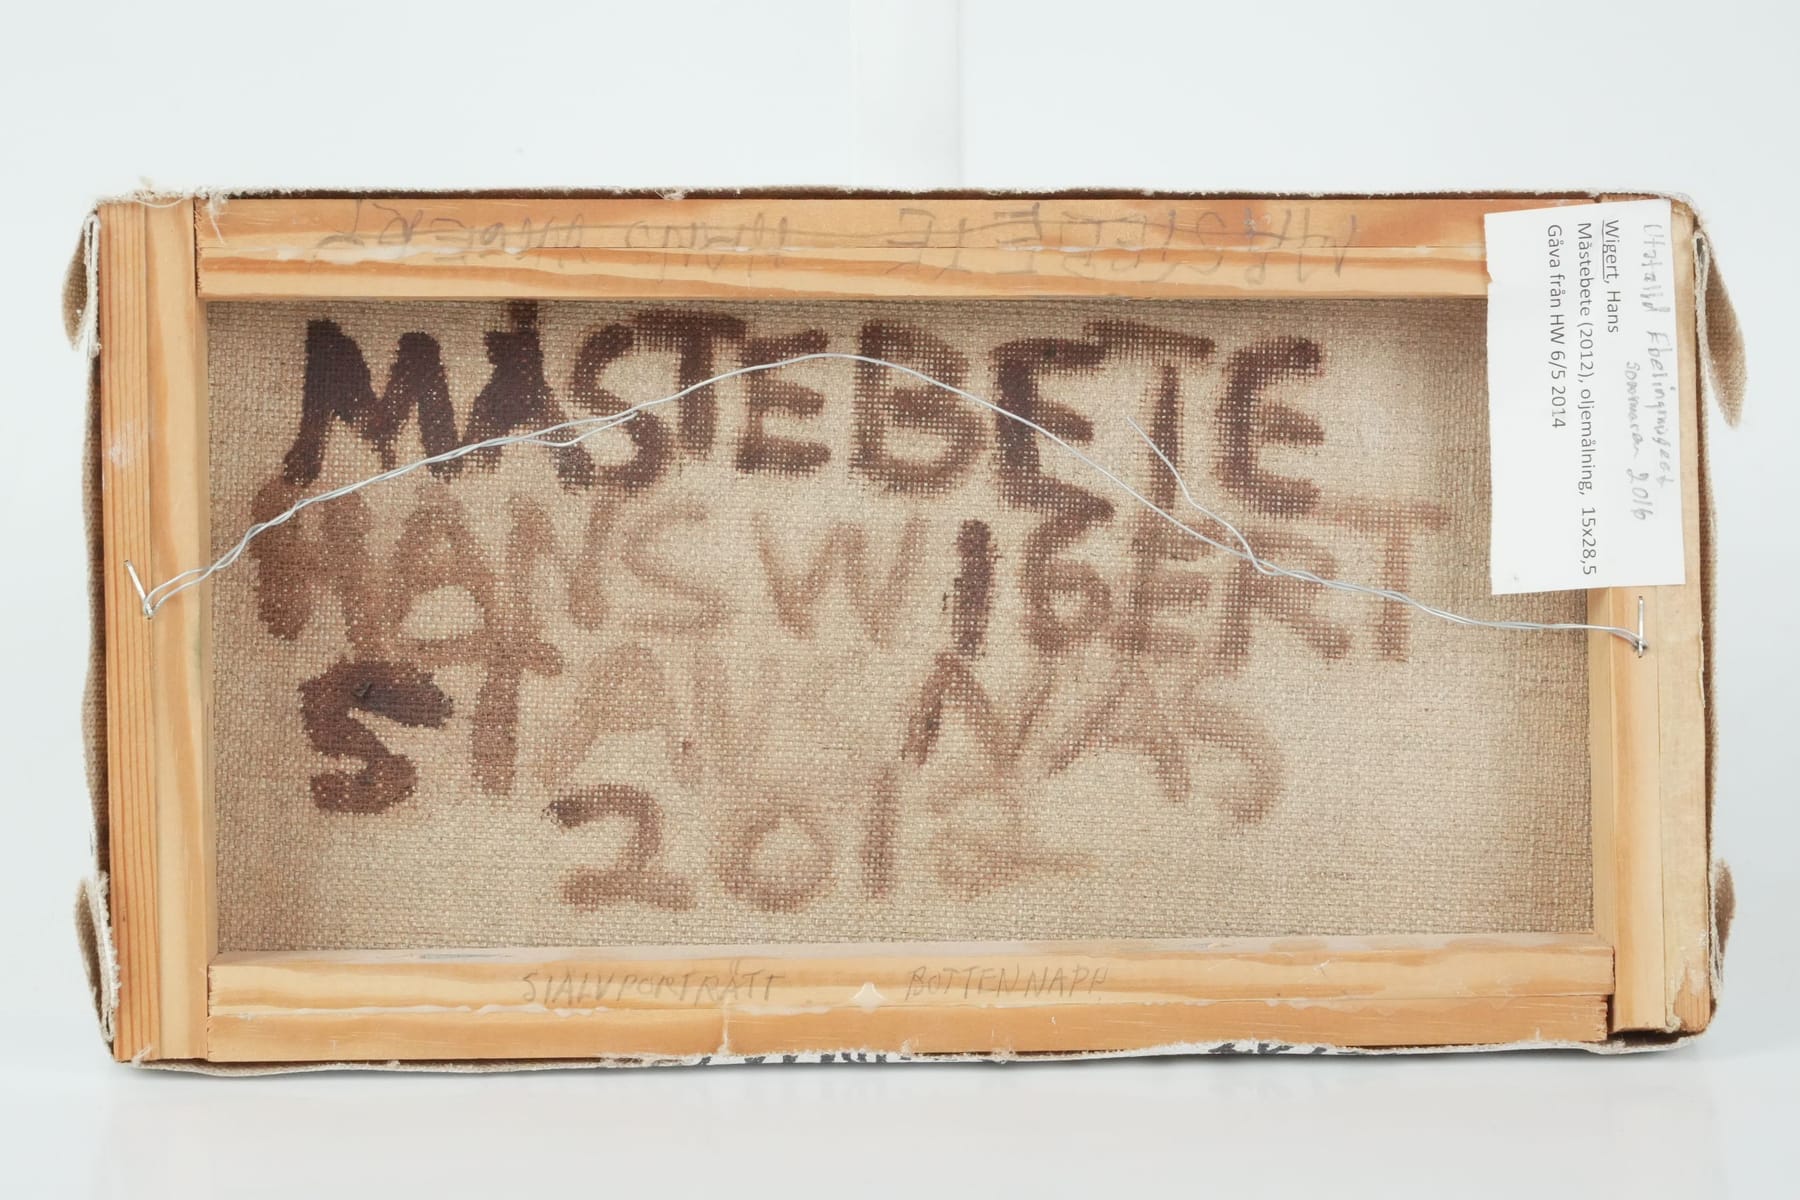 MÅSTEBETE HANS WIGERT
MÅSTEBETE
HANS WIGERT
STALK NÄS
2012
SIALVPORTRÄTT BOTTENNAPP
Utställd Ebelingmuseet
sommaren 2016
Wigert, Hans
Måstebete (2012), oljemålning, 15x28,5
Gåva från HW 6/5 2014